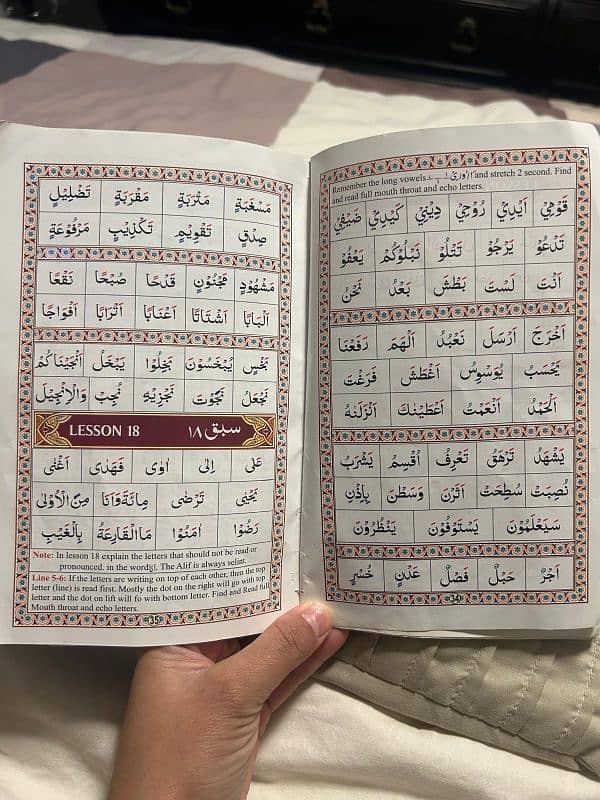 Remember the long vowels and stretch 2 second. Find
and read full mouth throat and echo letters.
قَوْمِيْ اَيْدِيْ رُوْحِيْ دِيْنِيْ كَيْدِيْ ضَيْفِيْ
تَدْعُوْ يَرْجُوْ تَتْلُوْ نَبْلُوَكُمْ يَعْفُوْ
اَنْتَ لَسْتَ بَطْشَ بَعْدُ نَحْنُ
اَخْرَجَ اَرْسَلَ نَعْبُدُ اَلْهَمَ رَفَعْنَا
يَحْسَبُ يُوَسْوِسُ اَغْطَشَ فَرَغْتَ
اَلْحَمْدُ اَنْعَمْتَ اَعْطَيْنٰكَ اَنْزَلْنٰهُ
يَشْهَدُ تَرْهَقُ تَعْرِفُ اُقْسِمُ يَشْرَبُ
نُصِبَتْ سُطِحَتْ اَثَرْنَ وَسَطْنَ بِاِذْنِ
سَيَعْلَمُوْنَ يَسْتَوْفُوْنَ يَنْظُرُوْنَ
اَجْرٌ حَبْلٌ فَصْلٌ عَدْنٍ خُسْرٍ
34
مَسْغَبَةٍ مَتْرَبَةٍ مَقْرَبَةٍ تَضْلِيْلٍ
صِدْقٍ تَقْوِيْمٍ تَكْذِيْبٍ مَرْفُوْعَةٍ
مَشْهُوْدٍ مَجْنُوْنٍ قَدْحًا صُبْحًا نَقْعًا
اَلْبَابًا اَشْتَاتًا اَعْنَابًا اَتْرَابًا اَفْوَاجًا
بَخْسٍ يُبْخَسُوْنَ بَخِلُوْا يَبْخَلُ اَنْجَيْنَاكُمْ
نَجْعَلُ نَجَوْتَ نَجْزِيْهِ نُجِبْ وَالْاِنْجِيْلَ
LESSON 18 سبق ١٨
عَلٰى اِلٰى اَوٰى فَهَدٰى اَغْنٰى
يَحْيٰى تَرْضٰى مِائَةً وَاَنَا مِنَ الْاُوْلٰى
رَضُوْا اٰمَنُوْا مَا الْقَارِعَةُ بِالْغَيْبِ
Note: In lesson 18 explain the letters that should not be read or
pronounced. in the word(اَنَا). The Alif is always selint.
Line 5-6: If the letters are writing on top of each other, then the top
letter (line) is read first. Mostly the dot on the right will go with top
letter and the dot on lift will fo with bottom letter. Find and Read full
Mouth throat and echo letters.
35